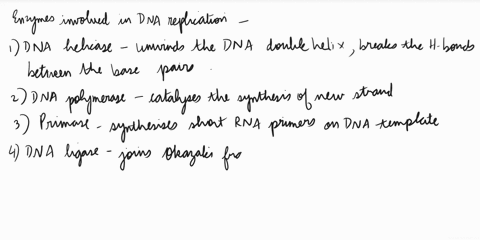 Enzymes involved in DNA replication –
1) DNA helicase – unwinds the DNA double helix, breaks the H-bonds
between the base pairs.
2) DNA polymerase – catalyses the synthesis of new strand
3) Primase – synthesises short RNA primers on DNA template
4) DNA ligase – joins Okazaki fra